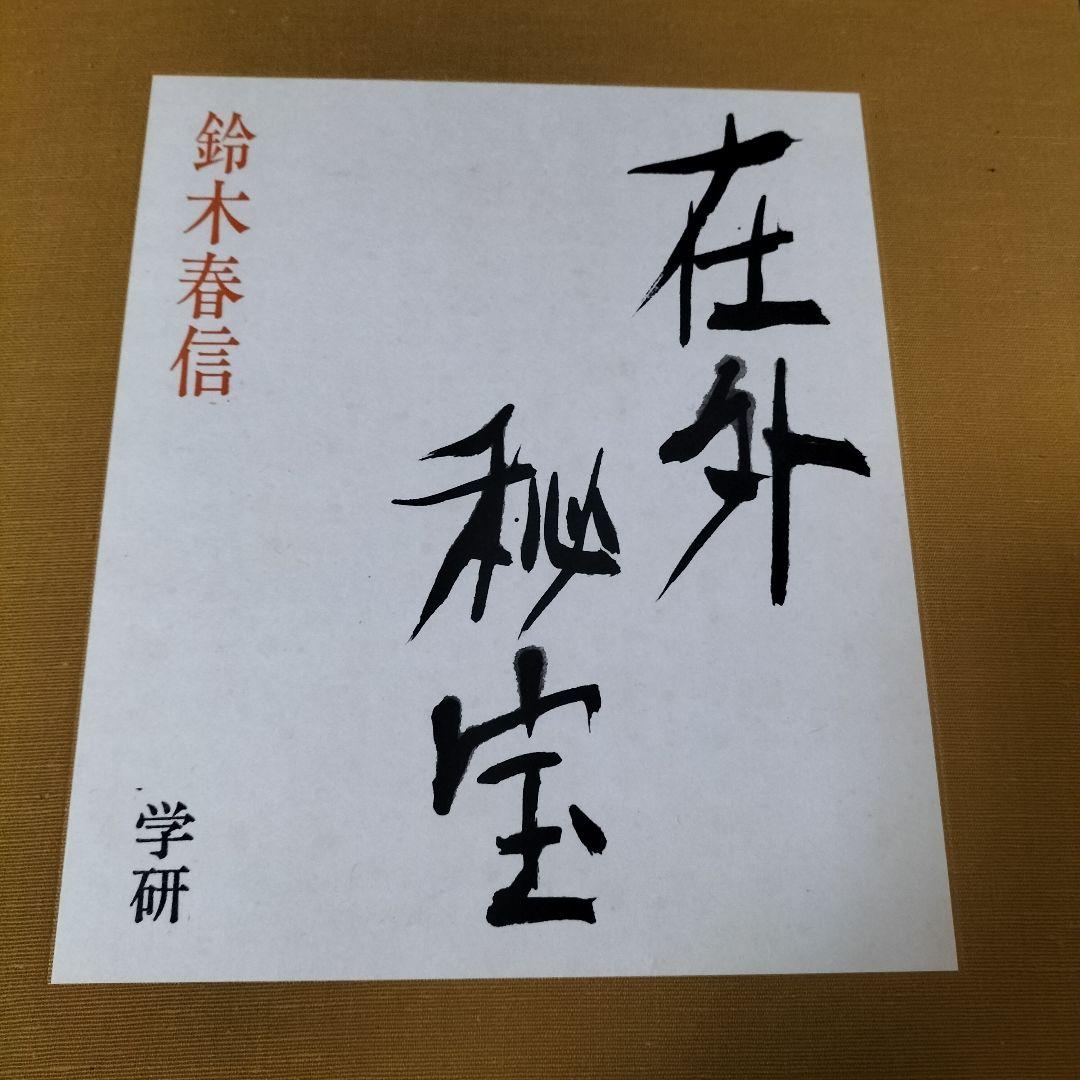 在外
秘宝
鈴木春信
学研